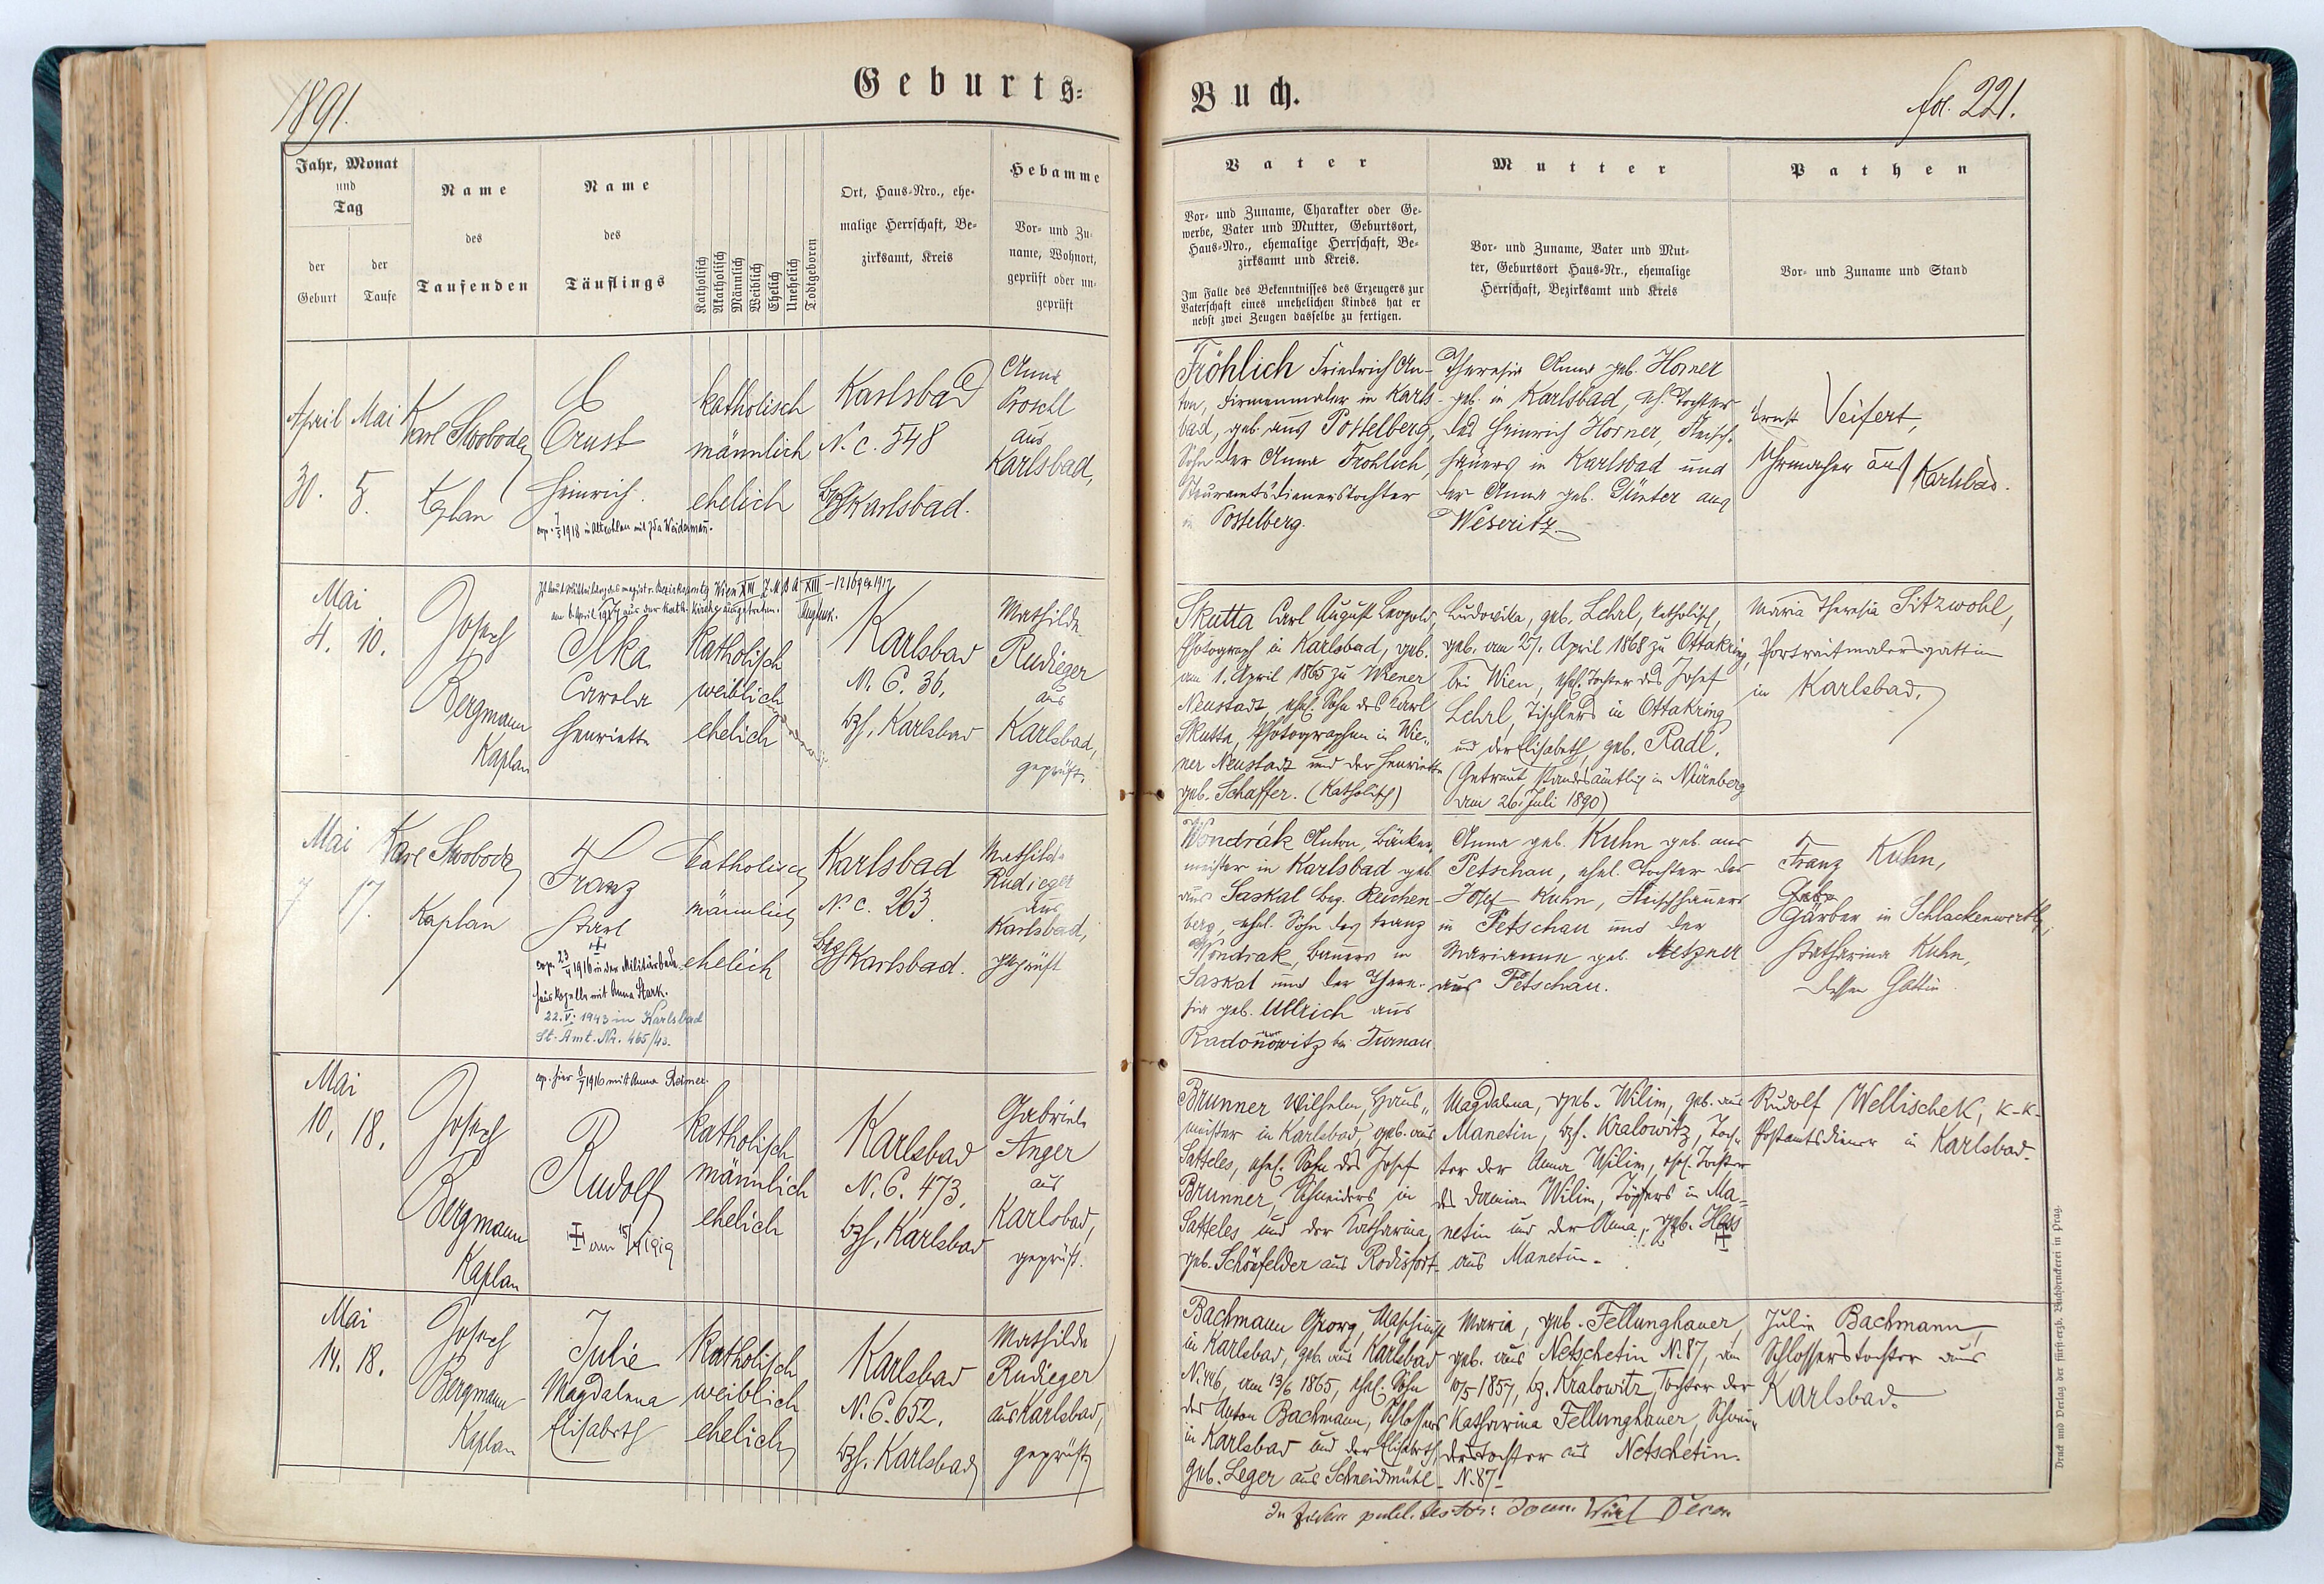 1891.
Geburts=
Jahr, Monat
und
Tag
der
Geburt
der
Taufe
Name
des
Taufenden
Name
des
Täuflings
Katholisch
Akatholisch
Männlich
Weiblich
Ehelich
Unehelich
Todtgeboren
Ort, Haus=Nro., ehe=
malige Herrschaft, Be=
zirksamt, Kreis
Hebamme
Vor= und Zu=
name, Wohnort,
geprüft oder un=
geprüft
April
30.
Mai
5.
Karl Swoboda
Kaplan
Ernst
Heinrich.
1918 in mit Ida
katholisch
männlich
ehelich
Karlsbad
N. c. 548
Karlsbad.
Anna
Poschl
aus
Karlsbad,
Mai
4. 10.
Josef
Bergmann
Kaplan
Wien XIII Z. M. B. A XIII – 1917
aus der kath. Kirche ausgetreten.
Ilka
Carola
Henriette
katholisch
weiblich
ehelich
Karlsbad
N. C. 36.
bzh. Karlsbad
Mathilde
Rudieger
aus
Karlsbad,
geprüft.
Mai
7 17.
Karl Swoboda
Kaplan
Franz
Karl
cop. 23 1916 in der Militärbade=
hauskapelle mit Anna Stark.
22. V. 1943 in Karlsbad
St. Amt. Nr. 465/43.
katholisch
männlich
ehelich
Karlsbad
N. c. 263.
Karlsbad.
Mathilde
Rudieger
aus
Karlsbad,
geprüft
Mai
10. 18.
Josef
Bergmann
Kaplan
cop. hier 1916 mit Anna Reimer.
Rudolf
am 1919
katholisch
männlich
ehelich
Karlsbad
N. C. 473.
bzh. Karlsbad
Gabriele
Anger
aus
Karlsbad,
geprüft.
Mai
14. 18.
Josef
Bergmann
Kaplan
Julie
Magdalena
Elisabeth
katholisch
weiblich
ehelich
Karlsbad
N. C. 652.
bzh. Karlsbad
Mathilde
Rudieger
aus Karlsbad,
geprüft
Buch.
fol. 221.
Vater
Vor= und Zuname, Charakter oder Ge=
werbe, Vater und Mutter, Geburtsort,
Haus=Nro., ehemalige Herrschaft, Be=
zirksamt und Kreis.
Im Falle des Bekenntnisses des Erzeugers zur
Vaterschaft eines unehelichen Kindes hat er
nebst zwei Zeugen dasselbe zu fertigen.
Mutter
Vor= und Zuname, Vater und Mut=
ter, Geburtsort Haus=Nr., ehemalige
Herrschaft, Bezirksamt und Kreis
Pathen
Vor= und Zuname und Stand
Fröhlich Friedrich An-
ton, Firmenmaler in Karls-
bad, geb. aus Postelberg,
Sohn der Anna Frohlich,
Steueramtsdienerstochter
in Postelberg.
Theresia Anna geb. Horner
geb. in Karlsbad, eh. Tochter
des Heinrich Horner, Fleisch-
hauers in Karlsbad und
der Anna geb. Günter aus
Weseritz
Ernst Veifert,
Uhrmacher aus Karlsbad.
Skutta Carl August Leopold,
Photograph in Karlsbad, geb.
am 1. April 1865 zu Wiener
Neustadt, ehel. Sohn des Carl
Skutta, Photographen in Wie=
ner Neustadt und der Henriette
geb. Schaffer. (Katholisch)
Ludovika, geb. Lehrl, katholisch,
geb. am 27. April 1868 zu Ottakring
bei Wien, ehel. Tochter des Josef
Lehrl, Tischlers in Ottakring
und der Elisabeth, geb. Radl.
(Getraut standesämtlich in Nürnberg
am 26. Juli 1890)
Maria Theresia Sitzwohl,
Portraitmalersgattin
in Karlsbad.
Wondrák Anton, Bäcker-
meister in Karlsbad geb.
aus Saskal bez. Reichen-
berg, ehel. Sohn des Franz
Wondrak, Bauers in
Saskal und der There-
sia geb. Ullrich aus
Radonowitz bei Turnau.
Anna geb. Kuhn geb. aus
Petschau, ehel. Tochter des
Josef Kuhn, Fleischhauers
in Petschau und der
Marianna geb. Metzner
aus Petschau.
Franz Kuhn,
Gärber in Schlackenwerth,
Katharina Kuhn,
dessen Gattin
Brunner Wilhelm, Haus=
meister in Karlsbad, geb. aus
Satteles, ehel. Sohn des Josef
Brunner, Schneiders in
Satteles und der Katharina,
geb. Schönfelder aus Rodisfort.
Magdalena, geb. Wilim, geb. aus
Manetin, bzh. Kralowitz, Toch=
ter der Anna Wilim, ehel. Tochter
des Damian Wilim, Töpfers in Ma=
netin und der Anna, geb. Hess
aus Manetin.
Rudolf Wellischek, K-K-
Postamtsdiener in Karlsbad.
Bachmann Georg, Maschinist
in Karlsbad, geb. aus Karlsbad
N. 446, am 13/6 1865, ehel. Sohn
des Anton Bachmann, Schlossers
in Karlsbad und der Elisabeth,
geb. Leger aus Schneidmühl
Maria, geb. Fellunghauer,
geb. aus Netschetin N. 87, am
10/5 1857, bz. Kralowitz, Tochter der
Katharina Fellunghauer, Schnei=
derstochter aus Netschetin
N. 87
Julie Bachmann,
Schlosserstochter aus
Karlsbad.
Druck und Verlag der fürst=erzb. Buchdruckerei in Prag.